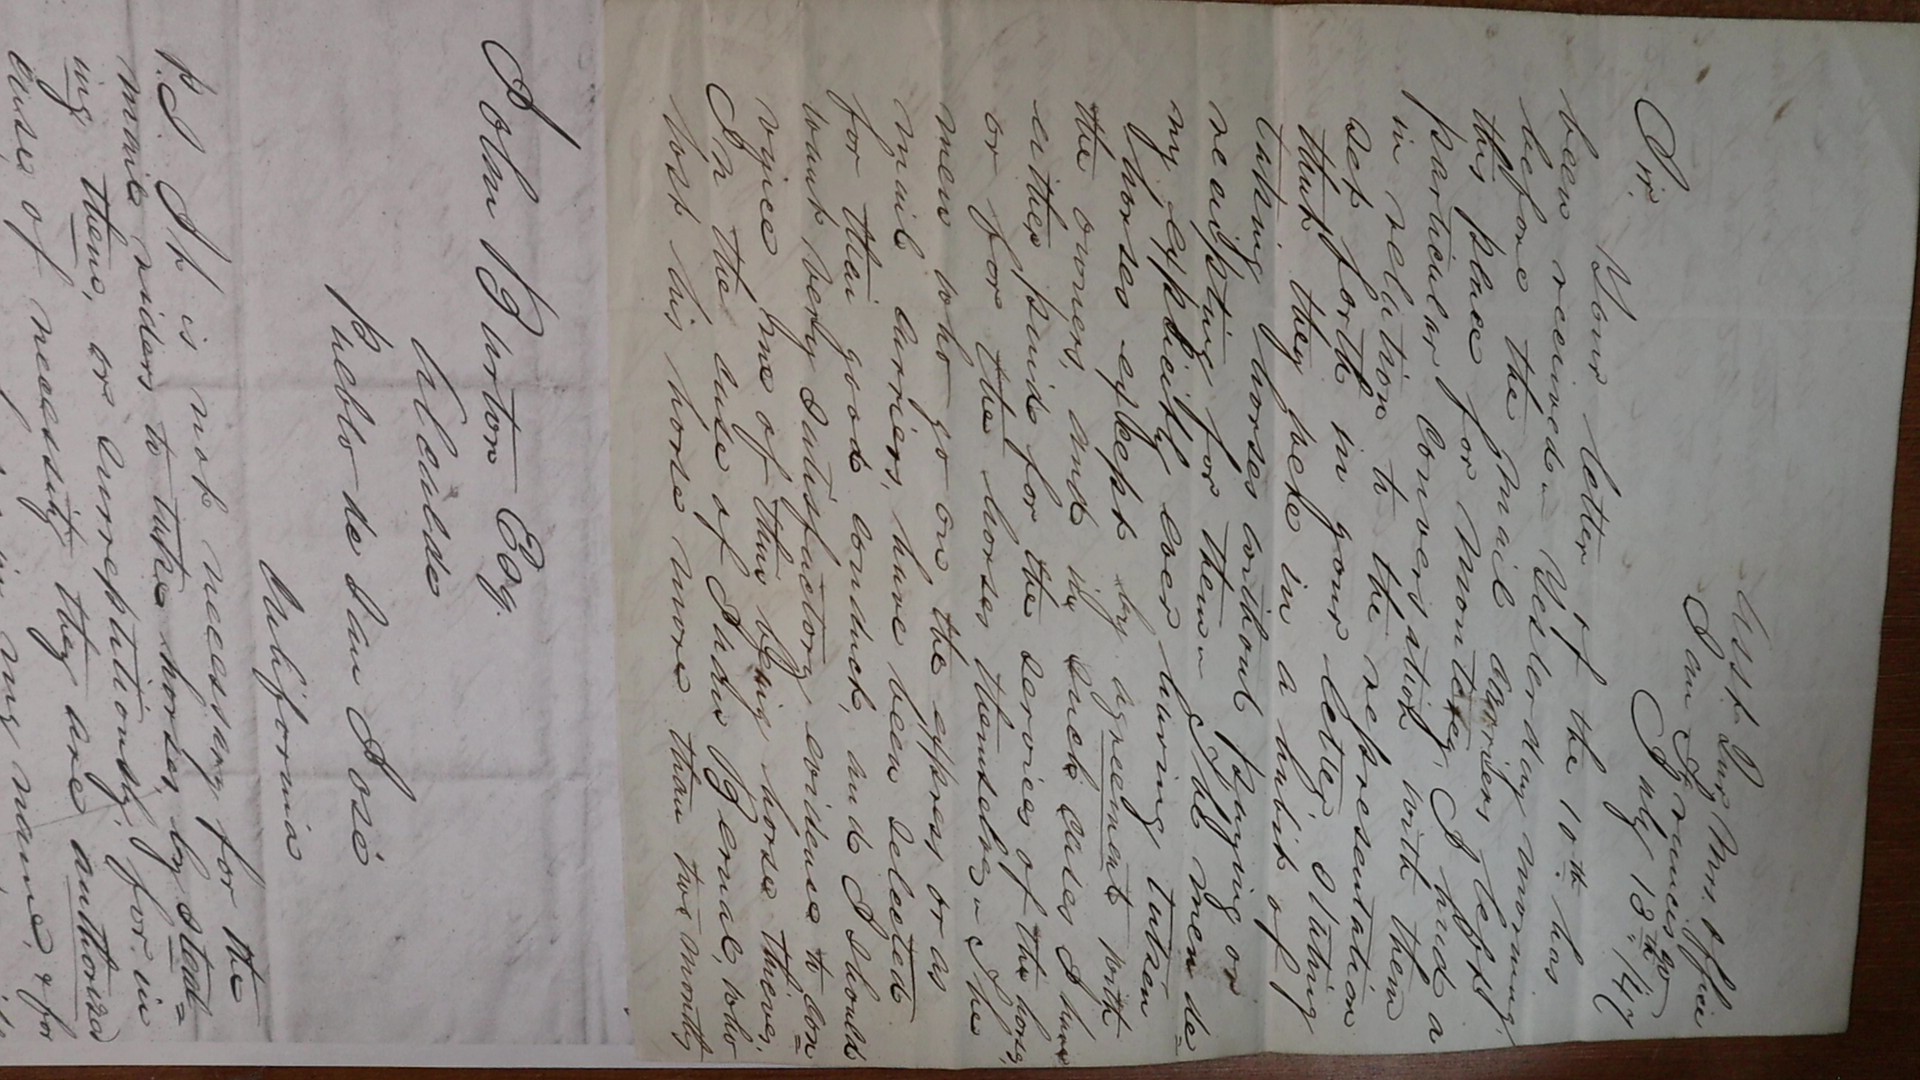 Asst Qur Mrs. Office
San Francisco
July 13th 1847
Sir.
Your letter of the 10th has
been received. Yesterday morning,
before the mail carriers left
this place for Monterey, I had a
particular conversation with them
in relation to the representation
set forth in your letter, stating
that they were in a habit of
taking horses without paying or
receipting for them. The men de=
ny explicitly ever having taken
horses except by agreement with
the owners, and in such cases I have
either paid for the services of the horses,
or for the horses themselves. The
men who go on the express or as
mail carriers, have been selected
for their good conduct, and I should
want very satisfactory evidence to con=
vince me of their being horse thieves.
In the case of Bernal, who
lost his horse more than two months
John Burton Esq.
Alcalde
Pueblo de San José
California
P.S. It is not necessary for the
mail riders to take horses, by steal=
ing them, or surreptitiously, for in
case of necessity they are authorized
in my name, & for